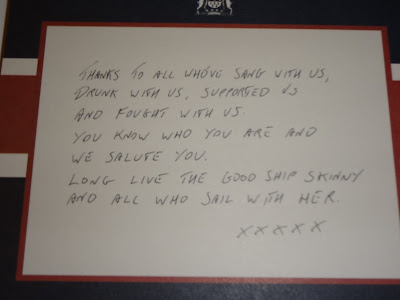 THANKS TO ALL WHO'VE SANG WITH US,
DRUNK WITH US, SUPPORTED US
AND FOUGHT WITH US.
YOU KNOW WHO YOU ARE AND
WE SALUTE YOU.
LONG LIVE THE GOOD SHIP SKINNY
AND ALL WHO SAIL WITH HER.
XXXXX